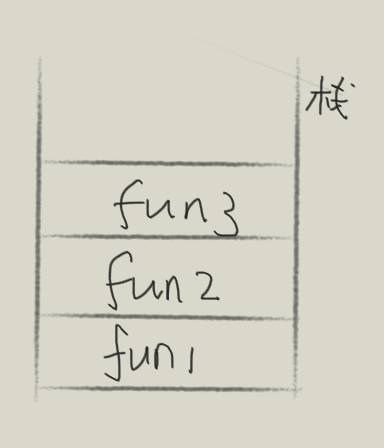 栈
fun3
fun2
fun1